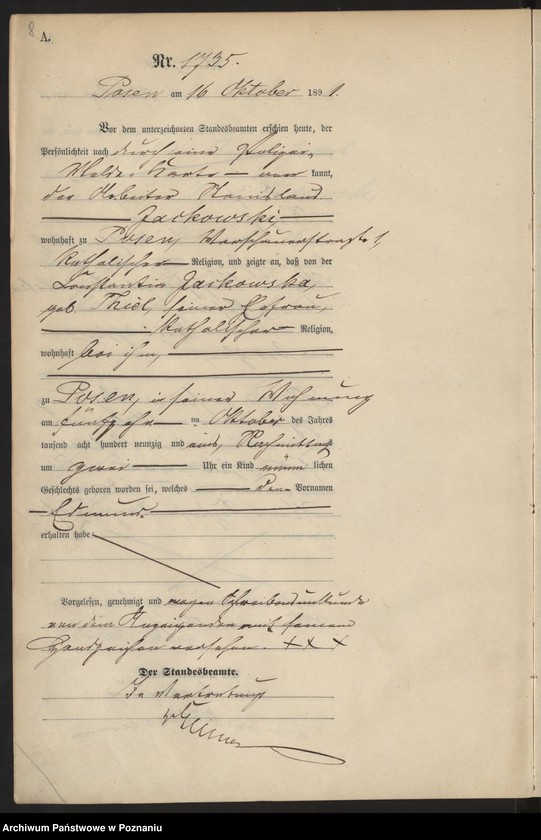 8
A.
Nr. 1735.
Posen am 16 Oktober 1891.
Vor dem unterzeichneten Standesbeamten erschien heute, der
Persönlichkeit nach durch eine Polizei,
Melde-Karte – aner kannt,
der Arbeiter Stanislaus
Jackowski,
wohnhaft zu Posen, Warschauerstraße 1,
katholischer Religion, und zeigte an, daß von der
Constantia Jackowska,
geb. Thiel, seiner Ehefrau,
katholischer Religion,
wohnhaft bei ihm,
zu Posen, in seiner Wohnung
am fünfzehn ten Oktober des Jahres
tausend acht hundert neunzig und eins, Nachmittags
um zwei Uhr ein Kind männ lichen
Geschlechts geboren worden sei, welches den Vornamen
Edmund
erhalten habe
Vorgelesen, genehmigt und wegen Schreibensunkunde
von dem Anzeigenden mit seinem
Handzeichen versehen. + + +
Der Standesbeamte.
In Vertretung
Archiwum Państwowe w Poznaniu